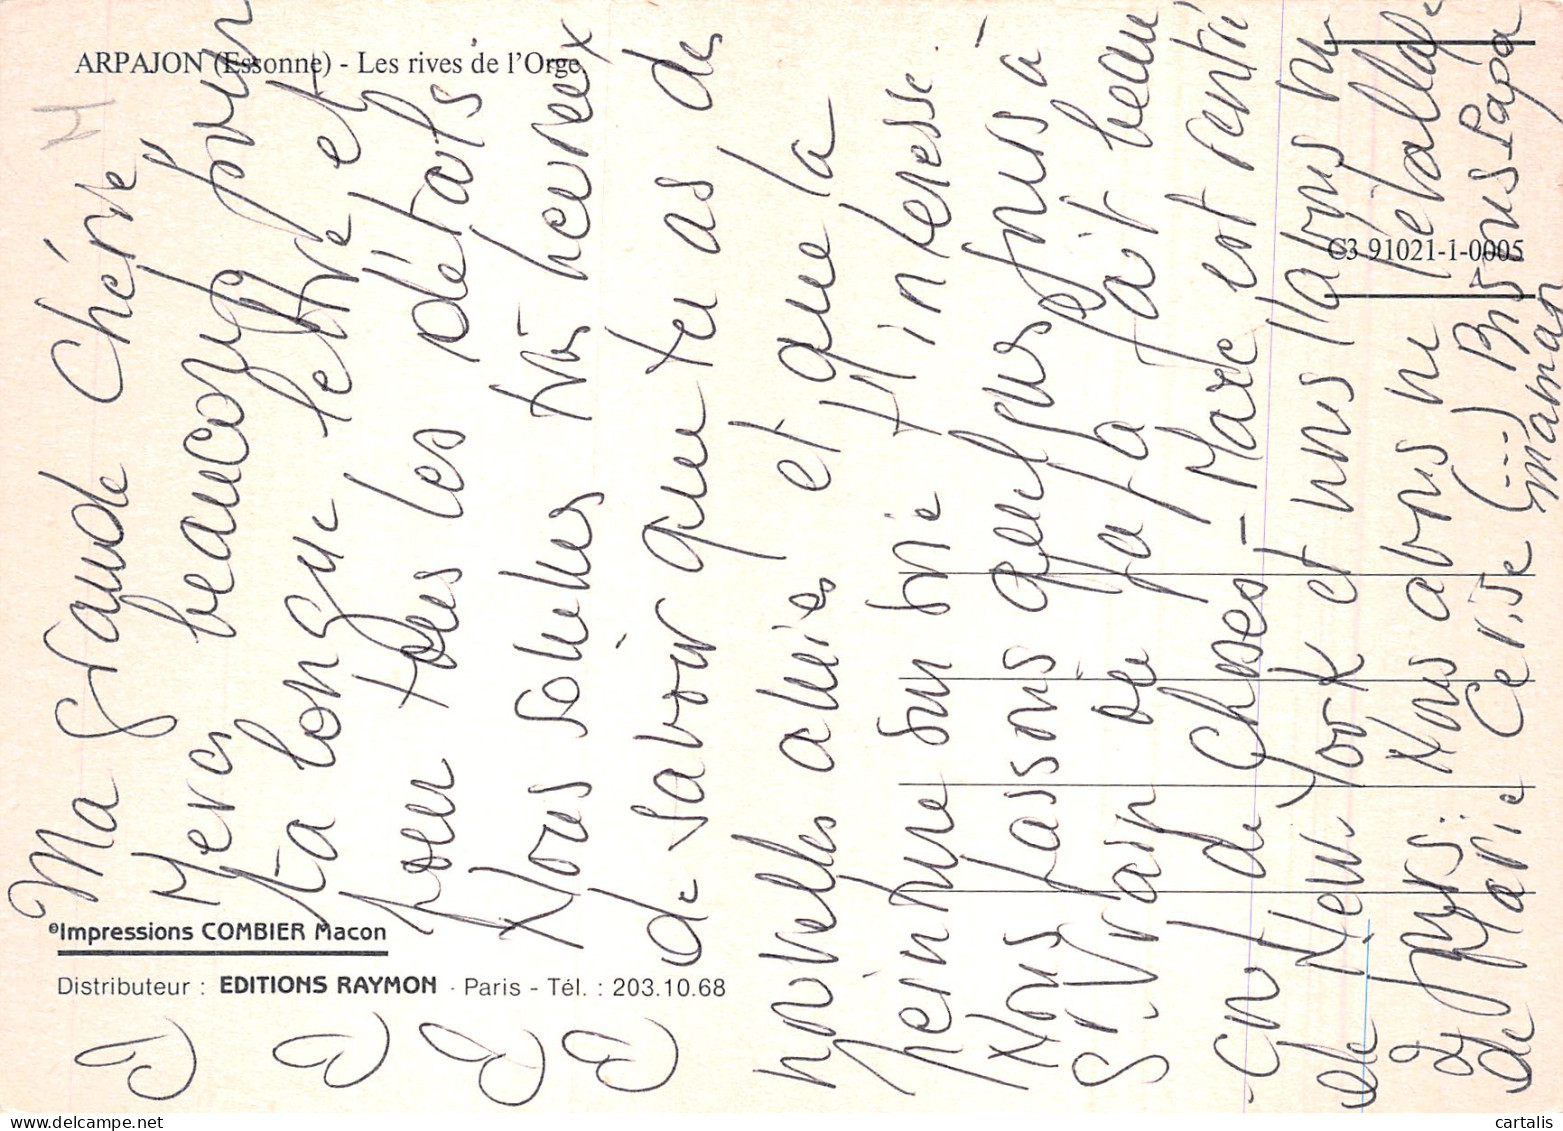 ARPAJON (Essonne) - Les rives de l'Orge.
C3 91021-1-0005
©Impressions COMBIER Macon
Distributeur : EDITIONS RAYMON - Paris - Tél. : 203.10.68
Ma grande Chérie
Merci beaucoup pour
ta longue lettre et
pour tous les détails
Nous sommes très heureux
de savoir que tu as de
nouvelles amies et que la
peinture sur soie t'intéresse.
Nous passons quelques jours à
St. Vrain où il fait beau
en de choses - Marc est rentré
de New York et nous l'avons vu
2 jours : Nous avons vu l'étallage
de Marie Cerise (...) Bisous Papa
maman
cartalis